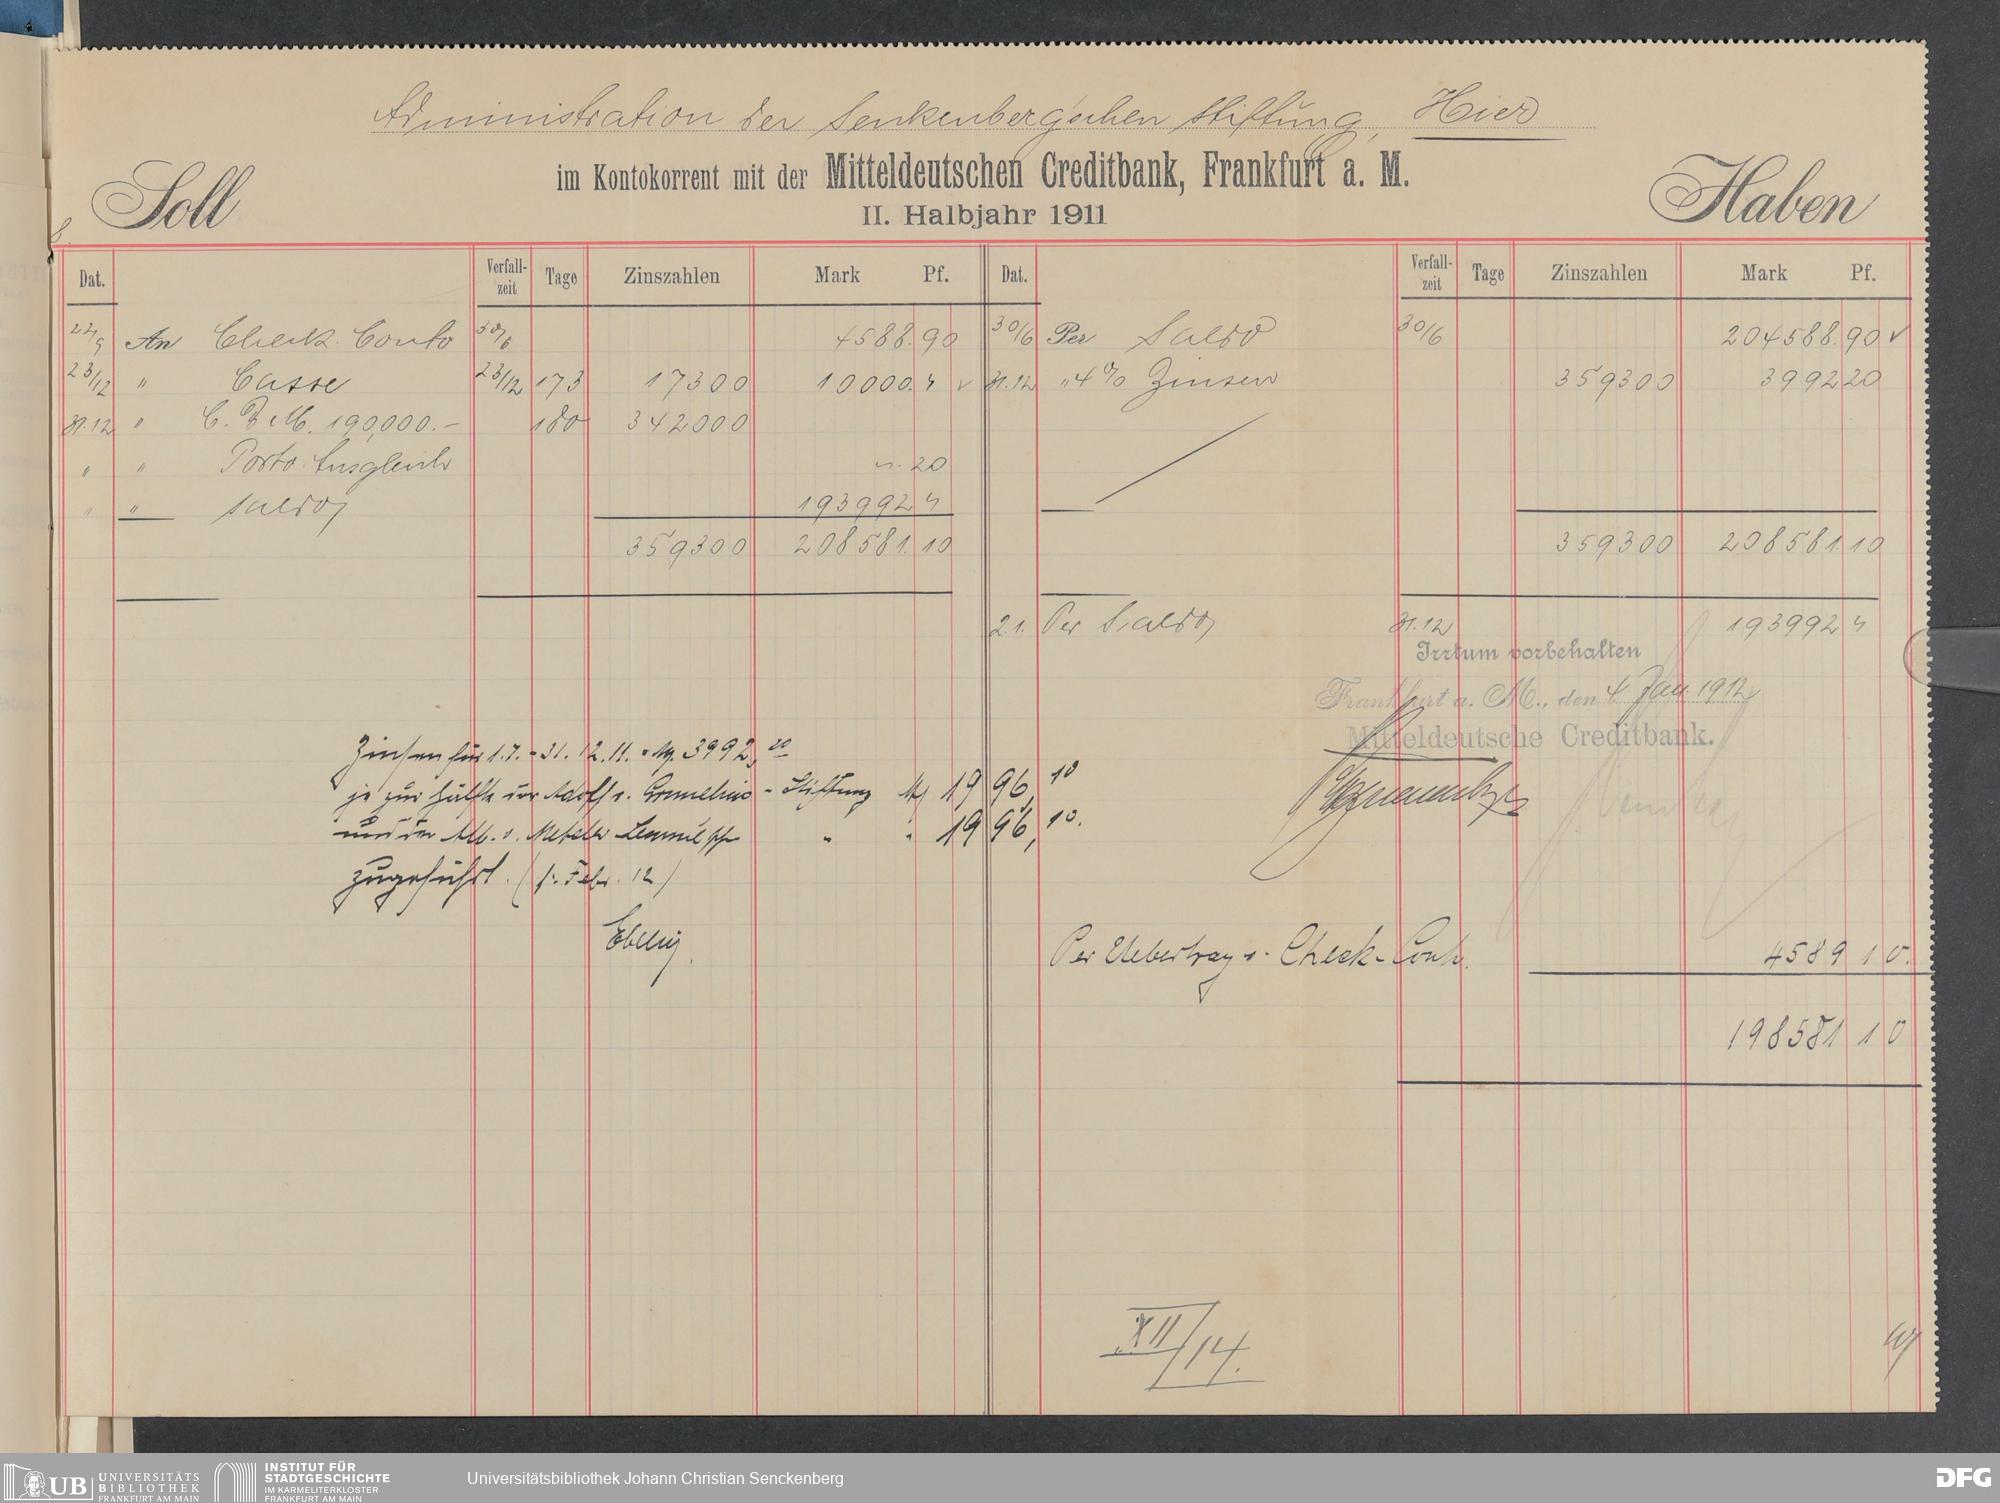 Administration der Senkenberg'schen Stiftung, Hier
im Kontokorrent mit der Mitteldeutschen Creditbank, Frankfurt a. M.
Soll
II. Halbjahr 1911
Haben
Dat. Verfallzeit Tage Zinszahlen Mark Pf.
An Check Conto 30/6 4588.90
23/12 " Casse 23/12 173 17300 10000.
31.12 " 190,000.- 180 342000
" " Porto Ausgleich 20
" " Saldo 193992
359300 208581.10
Dat. Verfallzeit Tage Zinszahlen Mark Pf.
30/6 Per Saldo 30/6 204588.90
31.12 " 4% Zinsen 359300 3992 20
359300 208581.10
2.1. Per Saldo 31.12 193992
Irrtum vorbehalten
Frankfurt a. M., den 4. Jan. 1912
Mitteldeutsche Creditbank.
Zinsen für 1.7. - 31.12.11. 3992,20
je zur Hälfte der Adolf - Stiftung 1996,10
und der " " 1996,10.
zugeführt. (Febr. 12)
Per Uebertrag Check-Conto 4589 10.
198581 10
XII/14.
UB UNIVERSITÄTS
BIBLIOTHEK
FRANKFURT AM MAIN
INSTITUT FÜR
STADTGESCHICHTE
IM KARMELITERKLOSTER
FRANKFURT AM MAIN
Universitätsbibliothek Johann Christian Senckenberg
DFG